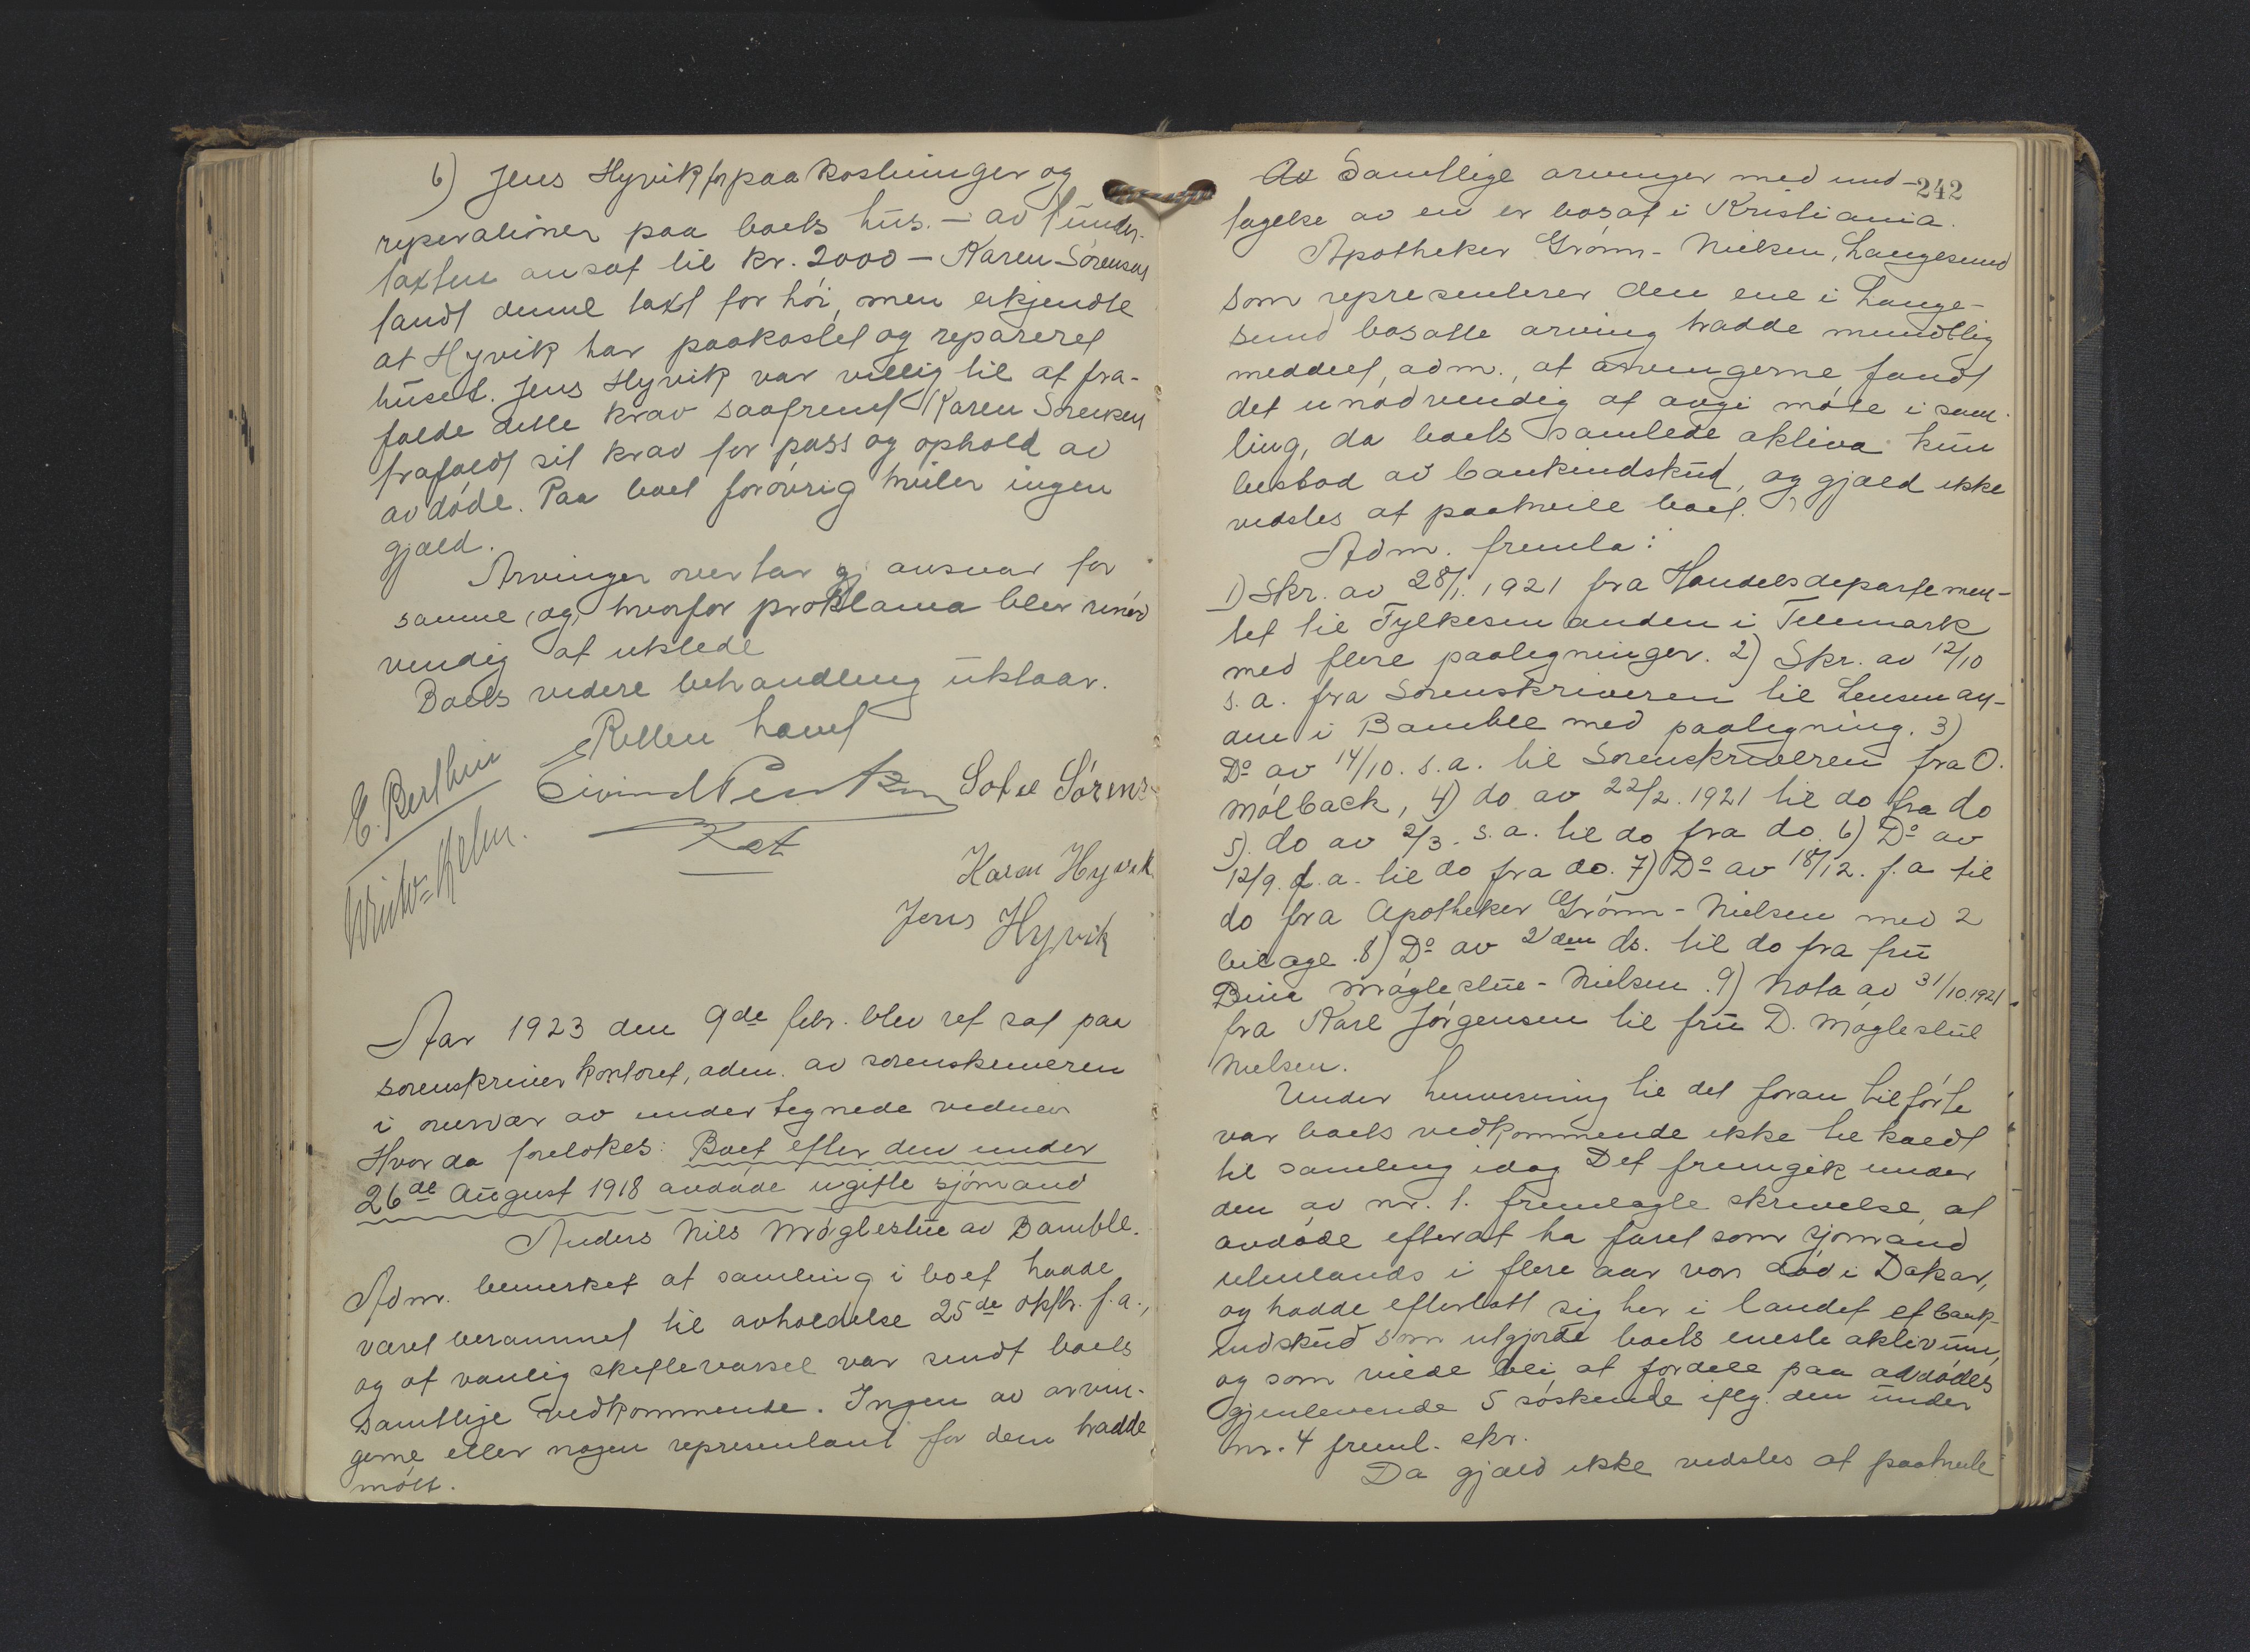 6) Jens Hyvik for paakostninger og
reperationer paa boets hus. – av 
taxten ansat til kr. 2000 – Karen Sørensen
fandt denne taxt for høi, men erkjendte
at Hyvik har paakostet og reparert
huset. Jens Hyvik var villig til at fra-
falde dette krav saafremt Karen Sørensen
frafaldt sit krav for pass og ophold av
avdøde. Paa boet forøvrig hviler ingen
gjæld.
Arvinger overtar ansvar for
samme, og hvorfor proklama blev unød
vendig at utstede
Boets videre behandling utstaar.
Retten hævet
Eivind
Kst
Sofie Sørens
E. Berthin
Karen Hyvik
Jens Hyvik
Aar 1923 den 9de febr. blev ret sat paa
sorenskriverkontoret, adm. av sorenskriveren
i overvær av undertegnede vidner
Hvor da foretokes: Boet efter den under
26de August 1918 avdøde ugifte sjømand
Anders Nils Møglestue av Bamble.
Adm. bemerket at samling i boet hadde
været berammet til avholdelse 25de oktbr. f.a.,
og at vanlig skiftevarsel var sendt boets
samtlige vedkommende. Ingen av arvin-
gerne eller nogen representant for dem hadde
møtt.
242
Av Samtlige arvinger med und-
tagelse av en er bosat i Kristiania.
Apotheker Grønn-Nielsen, Langesund
som representerer den ene i Lange-
sund bosatte arving hadde mundtlig
meddelt, adm., at arvingerne fandt
det unødvendig at avgi møte i sam-
ling, da boets samlede aktiva kun
bestod av bankindskud, og gjæld ikke
vidstes at paahvile boet.
Adm. fremla:
1) Skr. av 28/1. 1921 fra Handelsdepartemen-
tet til Fylkesmanden i Telemark
med flere paategninger. 2) Skr. av 12/10
s.a. fra Sorenskriveren til Lensman-
den i Bamble med paategning. 3)
Do av 14/10. s.a. til Sorenskriveren fra O.
Mølback, 4) do av 22/2. 1921 til do fra do
5). do av 2/3. s.a. til do fra do. 6) Do av
12/9. f.a. til do fra do. 7) Do av 18/12. f.a til
do fra Apotheker Grønn-Nielsen med 2
bilage. 8) Do av 2den ds. til do fra fru
Møglestue-Nielsen. 9) Nota av 31/10.1921
fra Karl Jørgensen til fru D. Møglestue
Nielsen.
Under henvisning til det foran tilførte
var boets vedkommende ikke tilkaldt
til samling idag Det fremgik under
den av nr. 1. fremlagte skrivelse, at
avdøde efterat ha faret som sjømand
utenlands i flere aar var død i Dakar,
og hadde efterlatt sig her i landet et bank-
indskud som utgjorde boets eneste aktivum,
og som vilde bli at fordele paa avdødes
gjenlevende 5 søskende iflg. den under
nr. 4 freml. skr.
Da gjæld ikke vidstes at paahvile